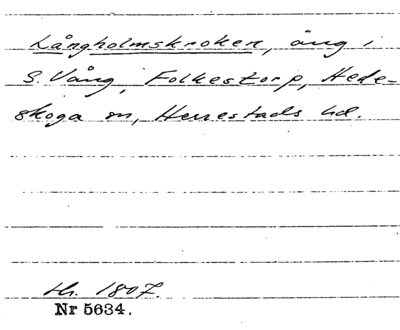 Långholmskroken, äng i
S. Vång, Folkestorp, Hede-
skoga sn, Herrestads hd.
Hr. 1807.
Nr 5634.